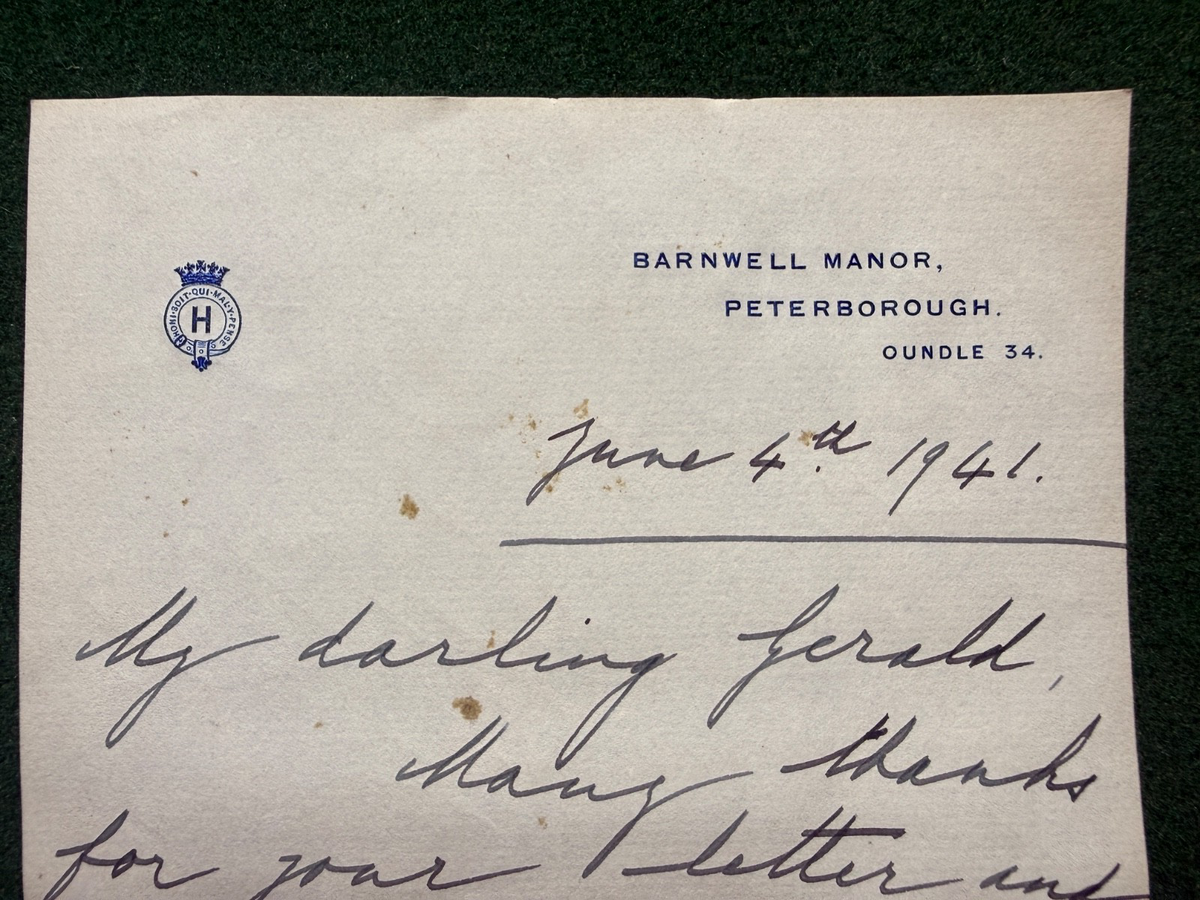 HONI·SOIT·QUI·MAL·Y·PENSE
H
BARNWELL MANOR,
PETERBOROUGH.
OUNDLE 34.
June 4th. 1941.
My darling Gerald,
Many thanks
for your letter and